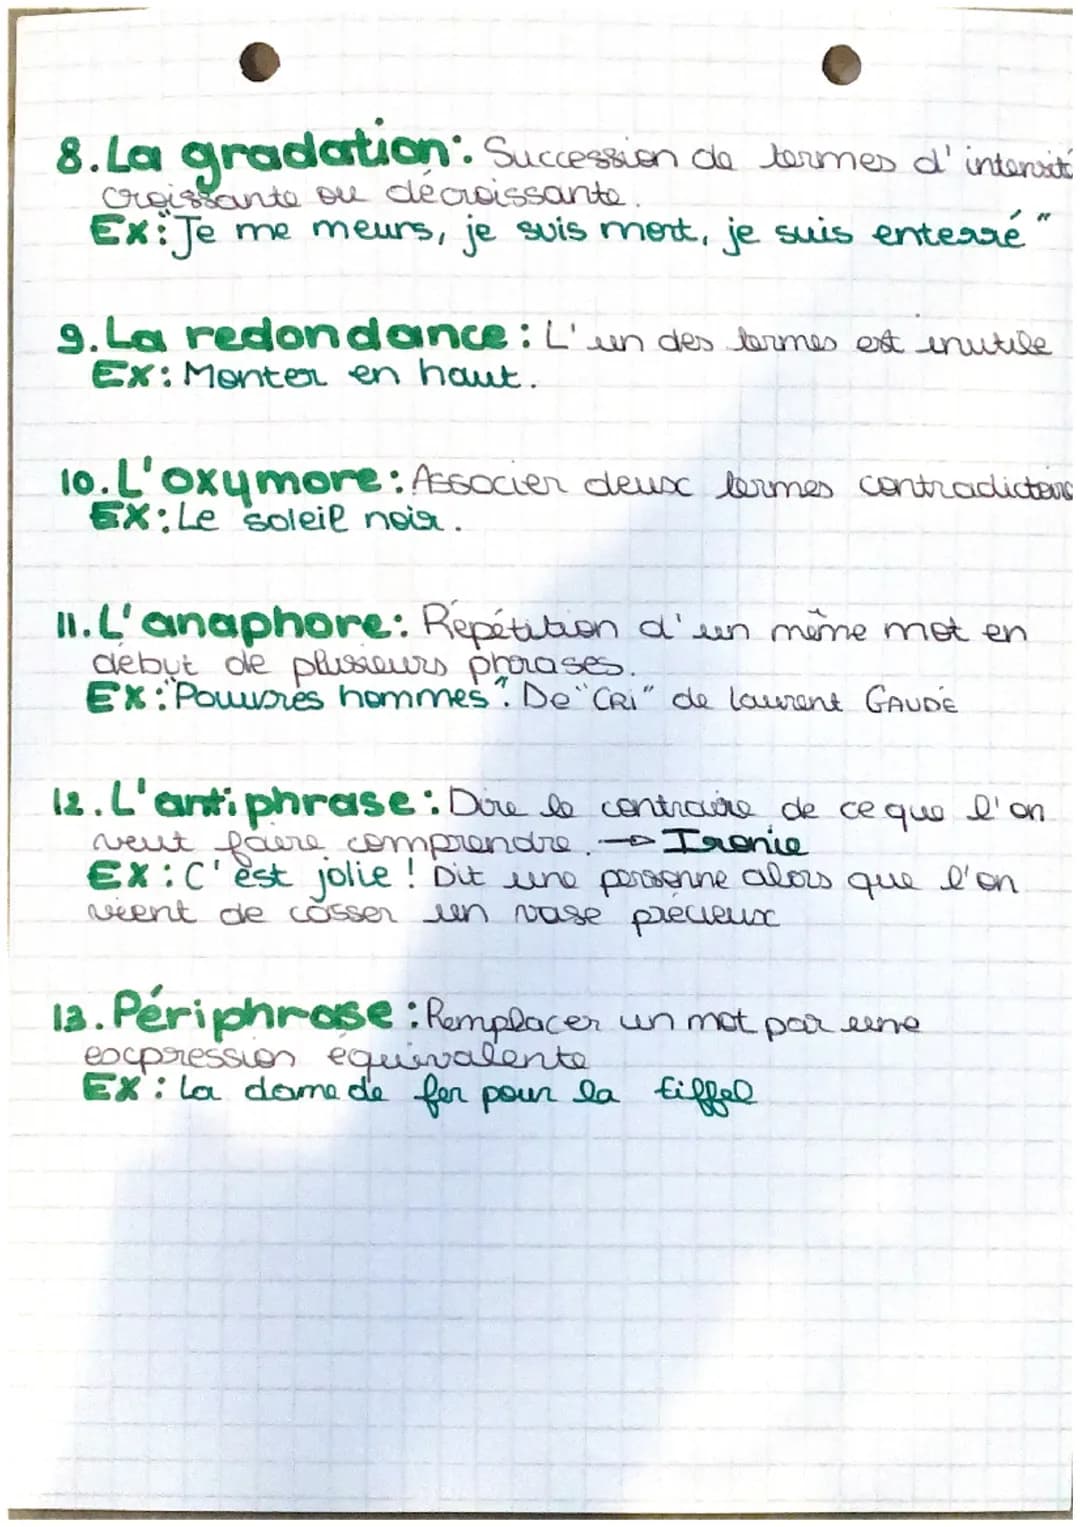 8. La gradation: Succession de termes d'intensité
croissante ou décroissante.
Ex: "Je me meurs, je suis mort, je suis enterré"
9. La redondance: L'un des termes est inutile
Ex: Monter en haut.
10. L'oxymore: Associer deux termes contradictoires
EX: Le soleil noir.
11. L'anaphore: Répétition d'un même mot en
début de plusieurs phrases.
EX: "Pauvres hommes". De "CRI" de laurent GAUDÉ
12. L'antiphrase: Dire le contraire de ce que l'on
veut faire comprendre. → Ironie
EX: C'est jolie! Dit une personne alors que l'on
vient de casser un vase précieux
13. Périphrase: Remplacer un mot par une
expression équivalente
EX: la dame de fer pour la tiffel